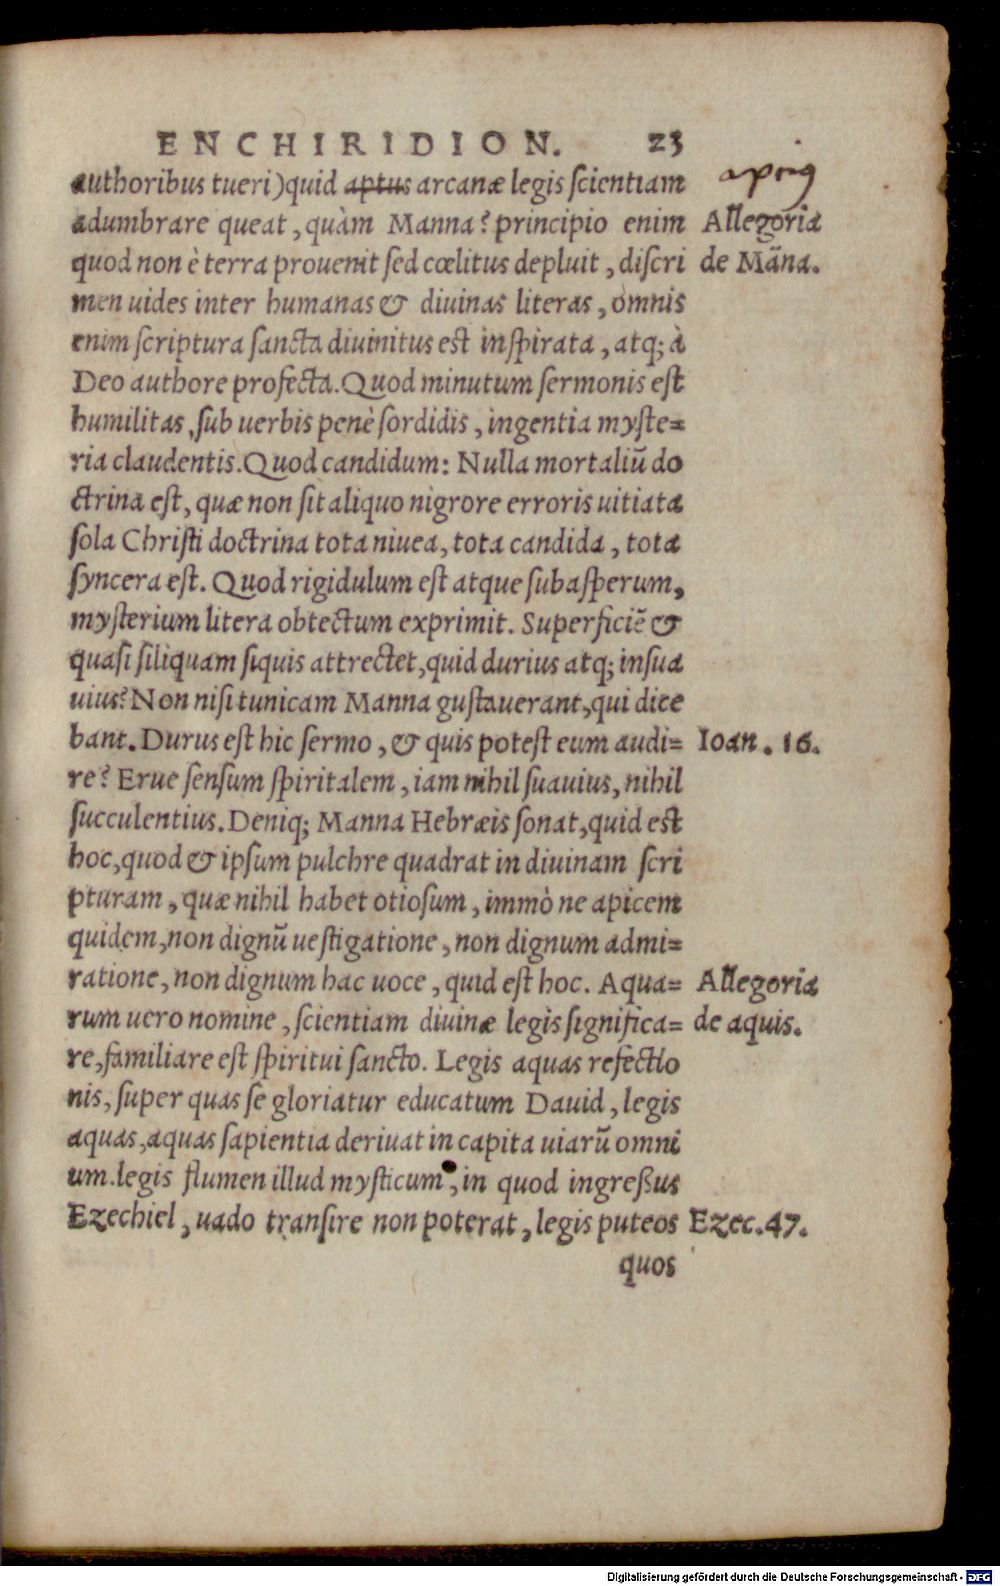 ENCHIRIDION. 23
authoribus tueri) quid aptus arcanæ legis scientiam
adumbrare queat, quàm Manna? principio enim
quod non è terra prouenit sed cœlitus depluit, discri
men uides inter humanas & diuinas literas, omnis
enim scriptura sancta diuinitus est inspirata, atq; à
Deo authore profecta. Quod minutum sermonis est
humilitas, sub uerbis penè sordidis, ingentia myste=
ria claudentis. Quod candidum: Nulla mortaliũ do
ctrina est, quæ non sit aliquo nigrore erroris uitiata
sola Christi doctrina tota niuea, tota candida, tota
syncera est. Quod rigidulum est atque subasperum,
mysterium litera obtectum exprimit. Superficiẽ &
quasi siliquam siquis attrectet, quid durius atq; insua
uius? Non nisi tunicam Manna gustauerant, qui dice
bant. Durus est hic sermo, & quis potest eum audi=
re? Erue sensum spiritalem, iam nihil suauius, nihil
succulentius. Deniq; Manna Hebræis sonat, quid est
hoc, quod & ipsum pulchre quadrat in diuinam scri
pturam, quæ nihil habet otiosum, immò ne apicem
quidem, non dignũ uestigatione, non dignum admi=
ratione, non dignum hac uoce, quid est hoc. Aqua=
rum uero nomine, scientiam diuinæ legis significa=
re, familiare est spiritui sancto. Legis aquas refectio
nis, super quas se gloriatur educatum Dauid, legis
aquas, aquas sapientia deriuat in capita uiarũ omni
um. legis flumen illud mysticum, in quod ingreßus
Ezechiel, uado transire non poterat, legis puteos
quos
Allegoria
de Mãna.
Ioan. 16.
Allegoria
de aquis.
Ezec. 47.
Digitalisierung gefördert durch die Deutsche Forschungsgemeinschaft - DFG